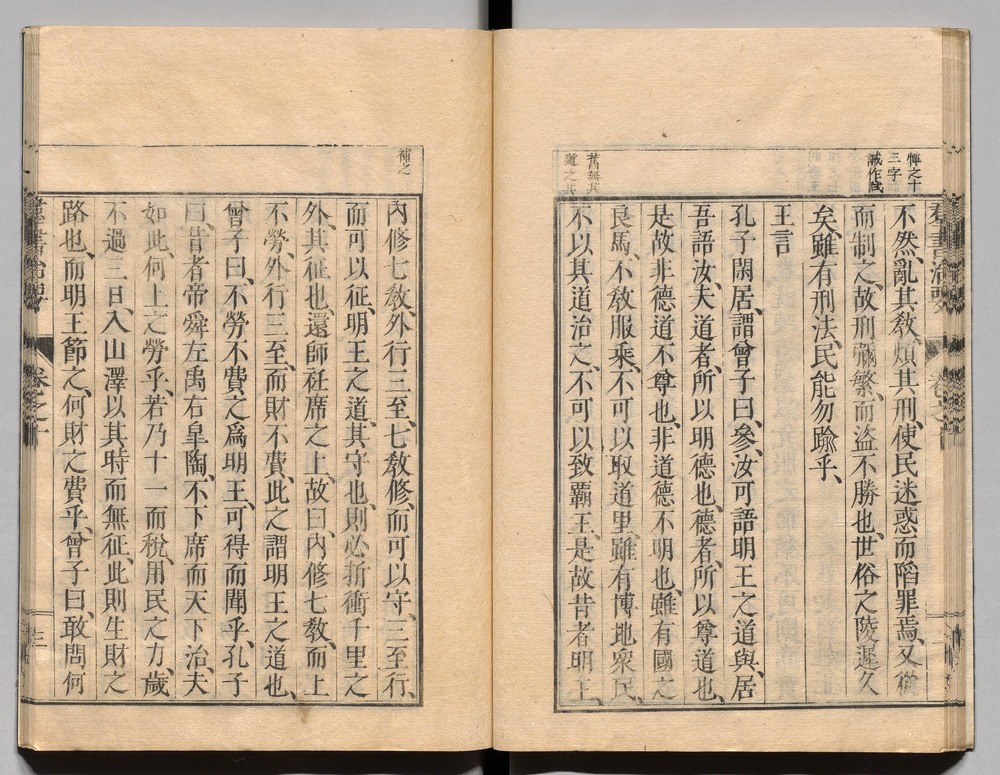 悼之十
三字
誡作試
不然、亂其教、煩其刑、使民迷惑而陷罪焉、又從
而制之、故刑彌繁、而盜不勝也、世俗之陵遲久
矣、雖有刑法、民能勿踰乎、
王言
孔子閑居、謂曾子曰、參、汝可語明王之道與、居
吾語汝、夫道者、所以明德也、德者、所以尊道也、
是故非德道不尊也、非道德不明也、雖有國之
良馬、不教服乘、不可以取道里、雖有博地衆民、
不以其道治之、不可以致霸王、是故昔者明王、
舊無其
道之共
補之
內修七教、外行三至、七教修、而可以守、三至行、
而可以征、明王之道、其守也、則必折衝千里之
外、其征也、還師衽席之上、故曰、內修七教、而上
不勞、外行三至、而財不費、此之謂明王之道也、
曾子曰、不勞不費之爲明王、可得而聞乎、孔子
曰、昔者帝舜左禹右皐陶、不下席而天下治、夫
如此、何上之勞乎、若乃十一而稅、用民之力、歲
不過三日、入山澤以其時而無征、此則生財之
路也、而明王節之、何財之費乎、曾子曰、敢問何
群書治要 卷之十 三